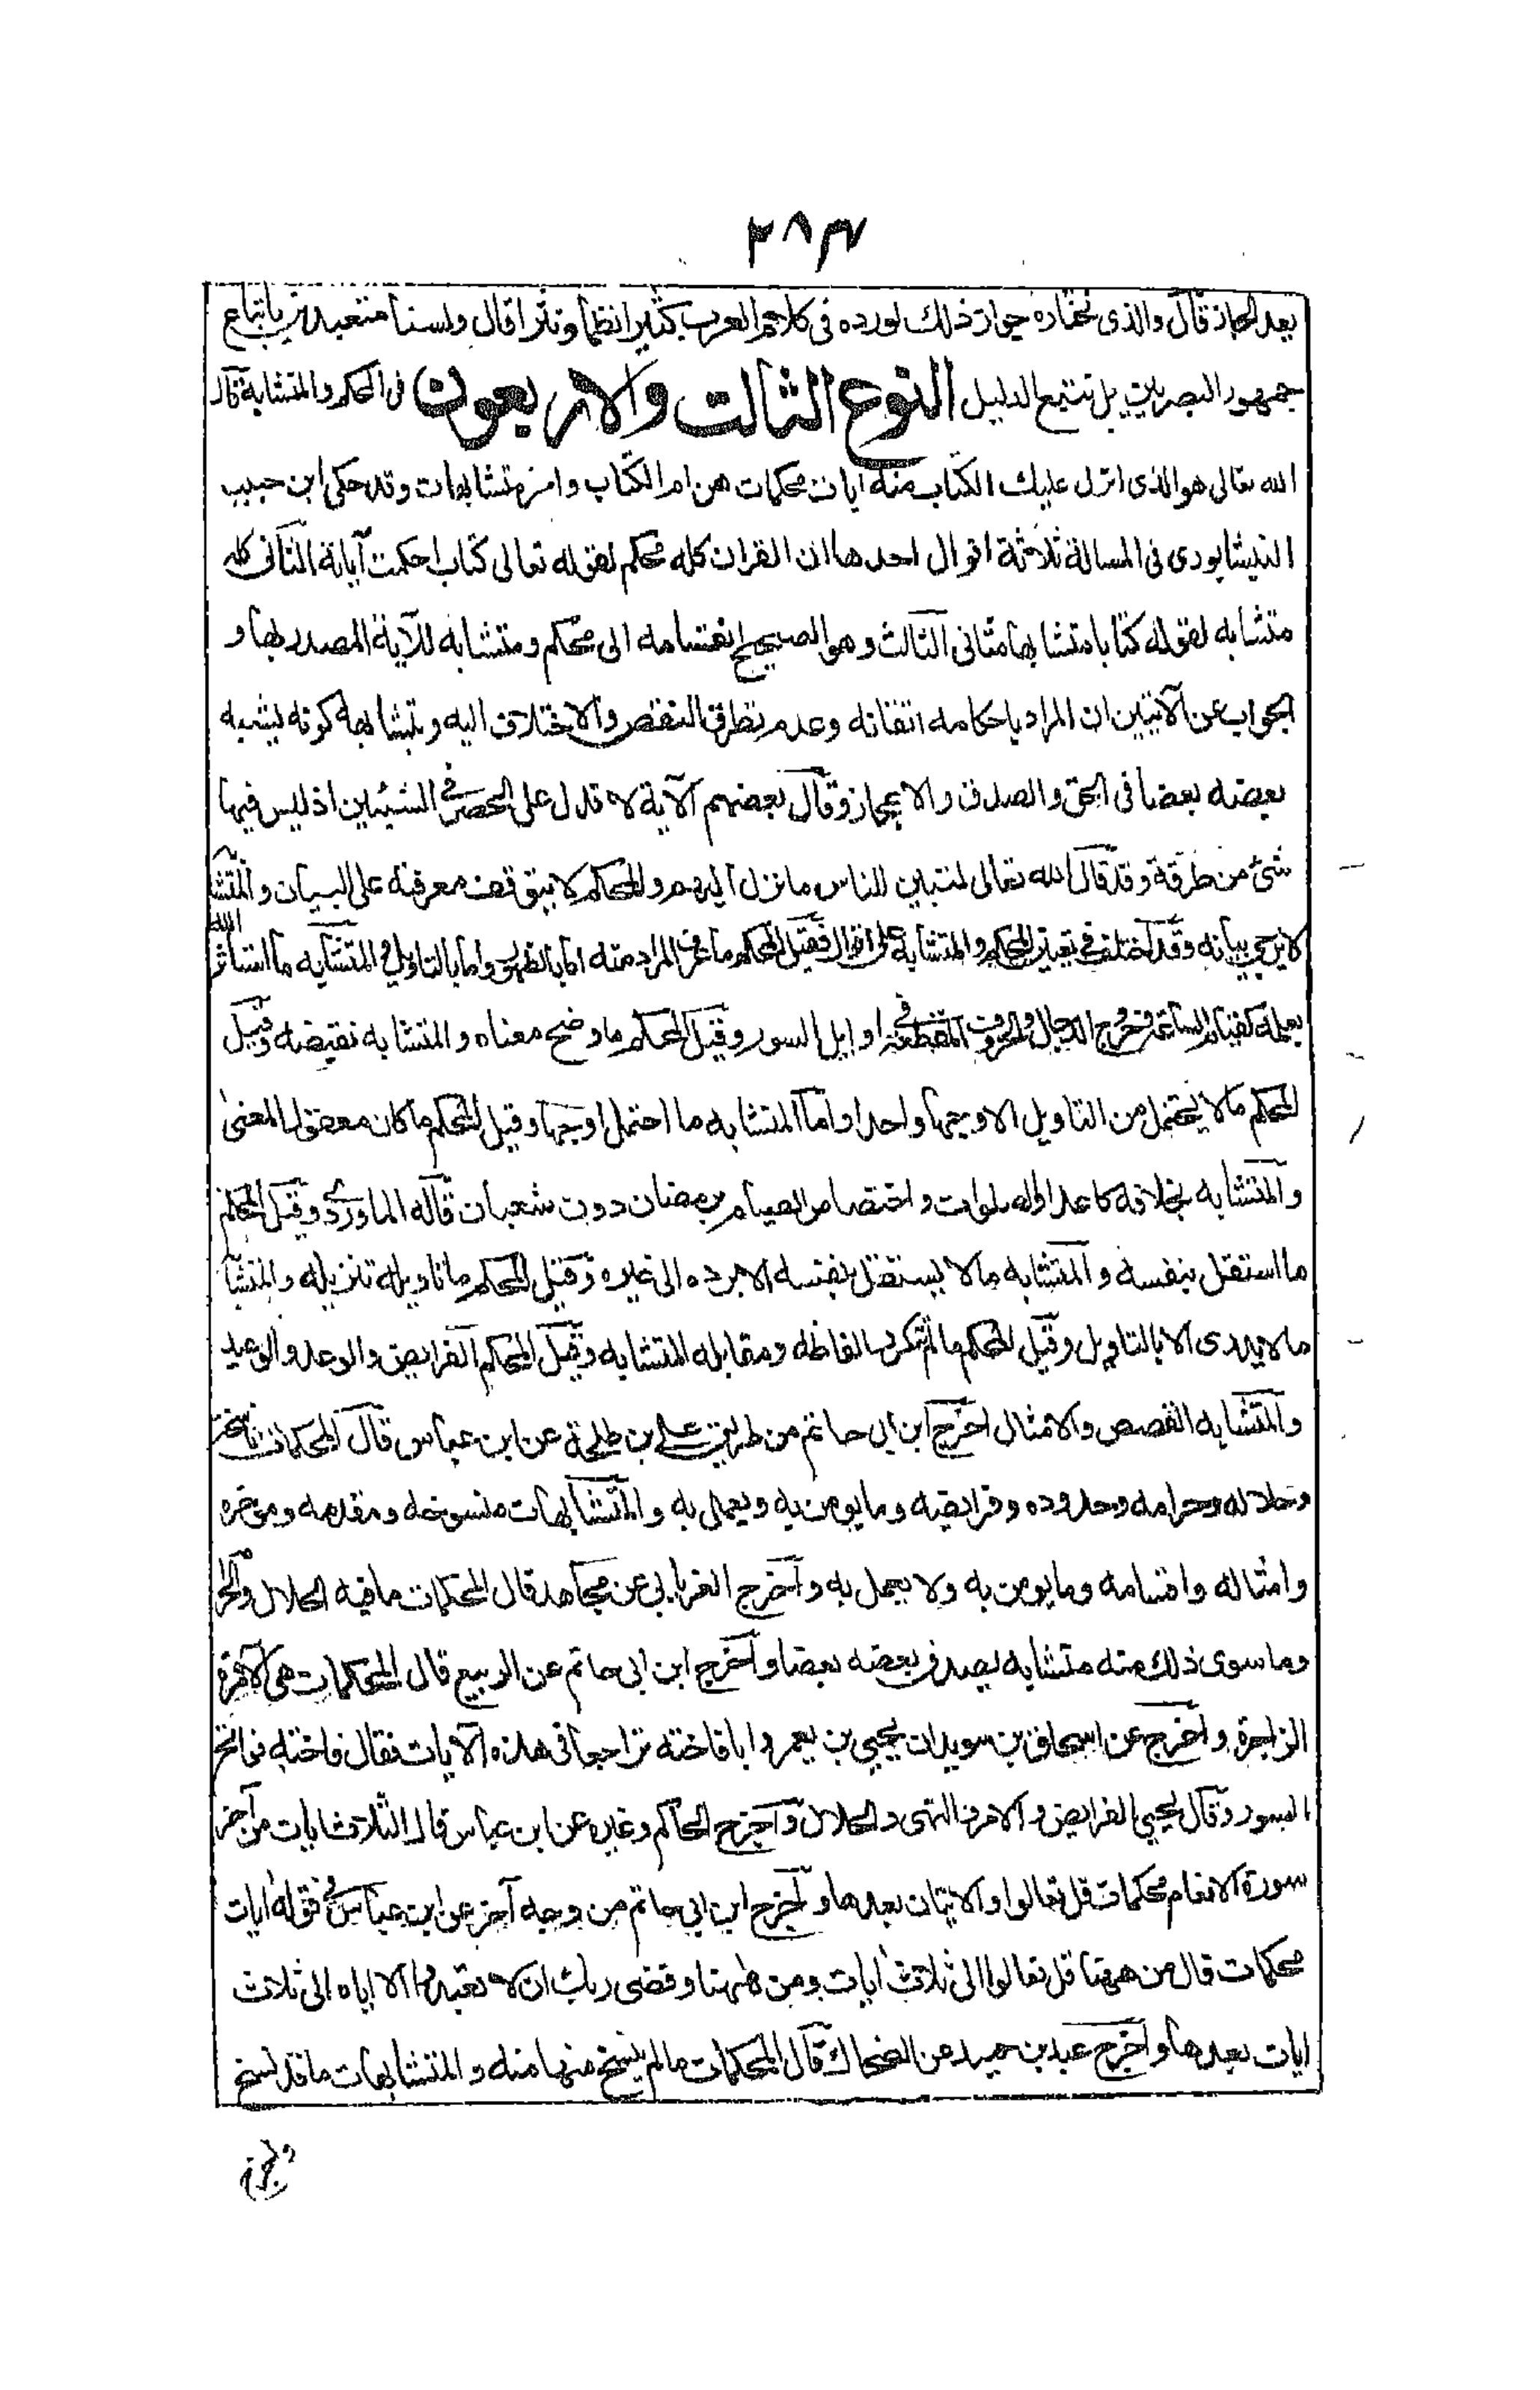 ٢٨٣
بعد الجار قال والذي نختاره جواز ذلك لوروده في كلام العرب كثيرا نظما ونثرا قال ولسنا متعبدين باتباع
جمهور البصريين بل نتبع الدليل النوع الثالث والاربعون في المحكم والمتشابه قال
الله تعالى هو الذي انزل عليك الكتاب منه ايات محكمات هن ام الكتاب واخر متشابهات وقد حكى ابن حبيب
النيشابوري في المسالة ثلاثة اقوال احدها ان القران كله محكم لقوله تعالى كتاب احكمت آياته الثاني كله
متشابه لقوله كتابا متشابها مثاني الثالث وهو الصحيح انقسامه الى محكم ومتشابه للآية المصدر بها و
الجواب عن الآيتين ان المراد باحكامه اتقانه وعدم تطرق النقص والاختلاف اليه وبتشابهه كونه يشبه
بعضه بعضا في الحق والصدق والاعجاز وقال بعضهم الآية لا تدل على الحصر في الشيئين اذ ليس فيها
شئ من طرقة وقد قال الله تعالى لتبين للناس ما نزل اليهم والمحكم لا يتوقف معرفته على البيان والمتشا
لا يرجى بيانه وقد اختلف في تعيين المحكم والمتشابه على اقوال فقيل المحكم ما عرف المراد منه اما بالظهور واما بالتاويل والمتشابه ما استاثر الله
بعلمه كقيام الساعة وخروج الدجال والحروف المقطعة في اوايل السور وقيل المحكم ما وضح معناه والمتشابه نقيضه وقيل
المحكم ما لا يحتمل من التاويل الا وجها واحدا واما المتشابه ما احتمل اوجها وقيل المحكم ما كان معقول المعنى
والمتشابه بخلافه كاعداد الصلوات واختصاص الصيام برمضان دون شعبان قاله الماوردي وقيل المحكم
ما استقل بنفسه والمتشابه ما لا يستقل بنفسه الا برده الى غيره وقيل المحكم ما تاويله تنزيله والمتشا
ما لا يدرى الا بالتاويل وقيل المحكم ما لم تتكرر الفاظه ومقابله المتشابه وقيل المحكم الفرايض والوعد والوعيد
والمتشابه القصص والامثال اخرج ابن ابي حاتم من طريق علي بن طلحة عن ابن عباس قال المحكمات ناسخه
وحلاله وحرامه وحدوده وفرايضه وما يومن به ويعمل به والمتشابهات منسوخه ومقدمه وموخره
وامثاله واقسامه وما يومن به ولا يعمل به واخرج الفريابي عن مجاهد قال المحكمات ما فيه الحلال والحرام
وما سوى ذلك منه متشابه يصدق بعضه بعضا واخرج ابن ابي حاتم عن الربيع قال المحكمات هي الآمرة
الزاجرة واخرج عن اسحاق بن سويد ان يحيي بن يعمر وابا فاخته تراجعا في هذه الآيات فقال فاخته فواتح
السور وقال يحيي الفرايض والامر والنهى والحلال واخرج الحاكم وغيره عن ابن عباس قال الثلاث ايات من آخر
سورة الانعام محكمات قل تعالوا والايتان بعدها واخرج ابن ابي حاتم من وجه آخر عن ابن عباس في قوله ايات
محكمات قال من ههنا قل تعالوا الى ثلاث ايات ومن ههنا وقضى ربك ان لا تعبدوا الا اياه الى ثلاث
ايات بعدها واخرج عبد بن حميد عن الضحاك قال المحكمات ما لم ينسخ منها منه والمتشابهات ما قد نسخ